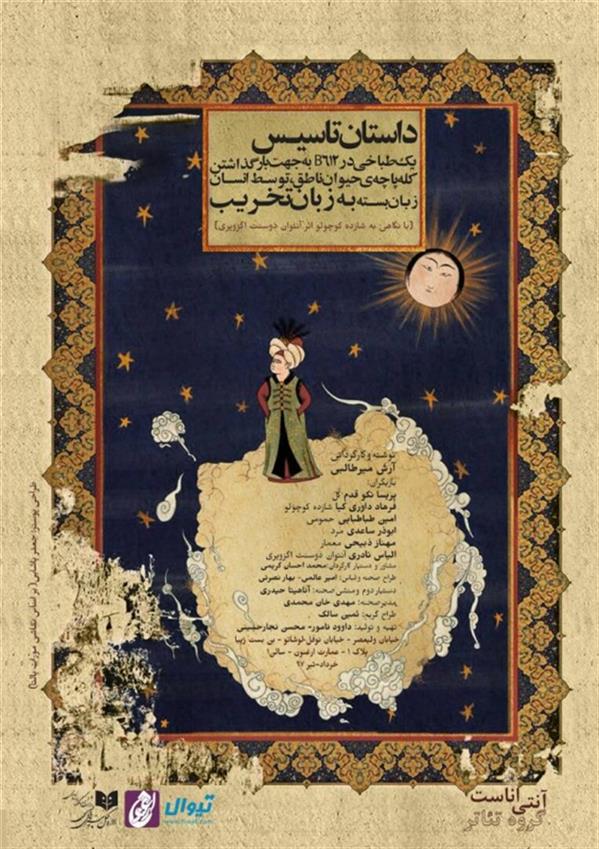 داستان تاسیس
یک طباخی در B٦١٢ به جهت بار گذاشتن
کله پاچه‌ی حیوان ناطق، توسط انسان
زبان بسته به زبان تخریب
(با نگاهی به شازده کوچولو اثر آنتوان دوسنت اگزوپری)
نوشته و کارگردانی
آرش میرطالبی
بازیگران:
پریسا نکو قدم گل
فرهاد داوری کیا شازده کوچولو
امین طباطبایی
ابوذر ساعدی مرد
مهناز ذبیحی معمار
الیاس نادری آنتوان دوسنت اگزوپری
مشاور و دستیار کارگردان: محمد احسان کریمی
طراح صحنه و لباس: امیر عالمی- بهار نصرتی
دستیار دوم و منشی صحنه: آناهیتا حیدری
مدیر صحنه: مهدی خان محمدی
طراح گریم: ثمین سالک
تهیه و تولید: داوود نامور- محسن نجار حسینی
خیابان ولیعصر - خیابان نوفل لوشاتو - بن بست زیبا
پلاک ۱ - عمارت ارغنون - سالن ۱
خرداد-تیر ۹۷
طراحی پوستر: جعفر
تیوال
www.tiwall.com
آنتی اناست
گروه تئاتر